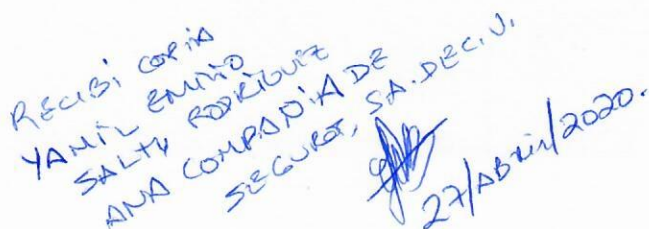 RECIBI COPIA
YAMIL EMITIO
SALTY RODRIGUEZ
ANA COMPAÑIA DE
SEGUROS, SA. DE C.V.
27/ABRIL/2020.